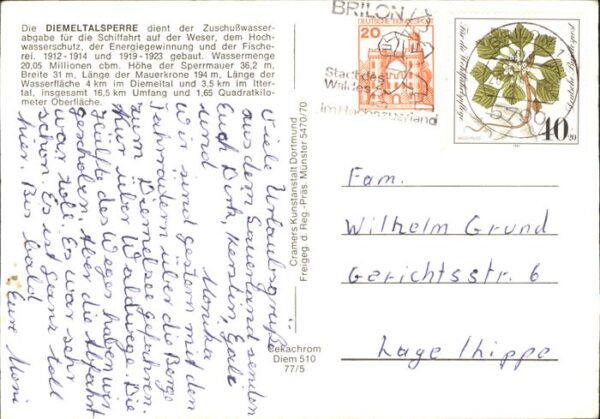 Die DIEMELTALSPERRE dient der Zuschußwasser-
abgabe für die Schiffahrt auf der Weser, dem Hoch-
wasserschutz, der Energiegewinnung und der Fische-
rei. 1912-1914 und 1919-1923 gebaut. Wassermenge
20,05 Millionen cbm. Höhe der Sperrmauer 36,2 m,
Breite 31 m, Länge der Mauerkrone 194 m, Länge der
Wasserfläche 4 km im Diemeltal und 3,5 km im Itter-
tal, insgesamt 16,5 km Umfang und 1,65 Quadratkilo-
meter Oberfläche.
Viele Urlaubsgrüße
aus dem Sauerland senden
Euch Dirk, Kerstin, Gabi
und Monika
Wir sind gestern mit den
Fahrrädern über die Berge
zum Diemelsee gefahren.
Nur über Waldwege. Die
Hälfte des Weges haben wir
geschoben. Aber die Abfahrt
war toll. Es war sehr
schön. Es ist ganz toll
hier. Bis bald
Eure Moni
Cramers Kunstanstalt Dortmund
Freigeg. d. Reg.-Präs. Münster 5470/70
Cekachrom
Diem 510
77/5
BRILON
Stadt des
Waldes
im Hochsauerland
DEUTSCHE BUNDESPOST
20
5790
Für die Wohlfahrtspflege
Deutsche Bundespost
40+20
Fam.
Wilhelm Grund
Gerichtsstr. 6
Lage Lippe